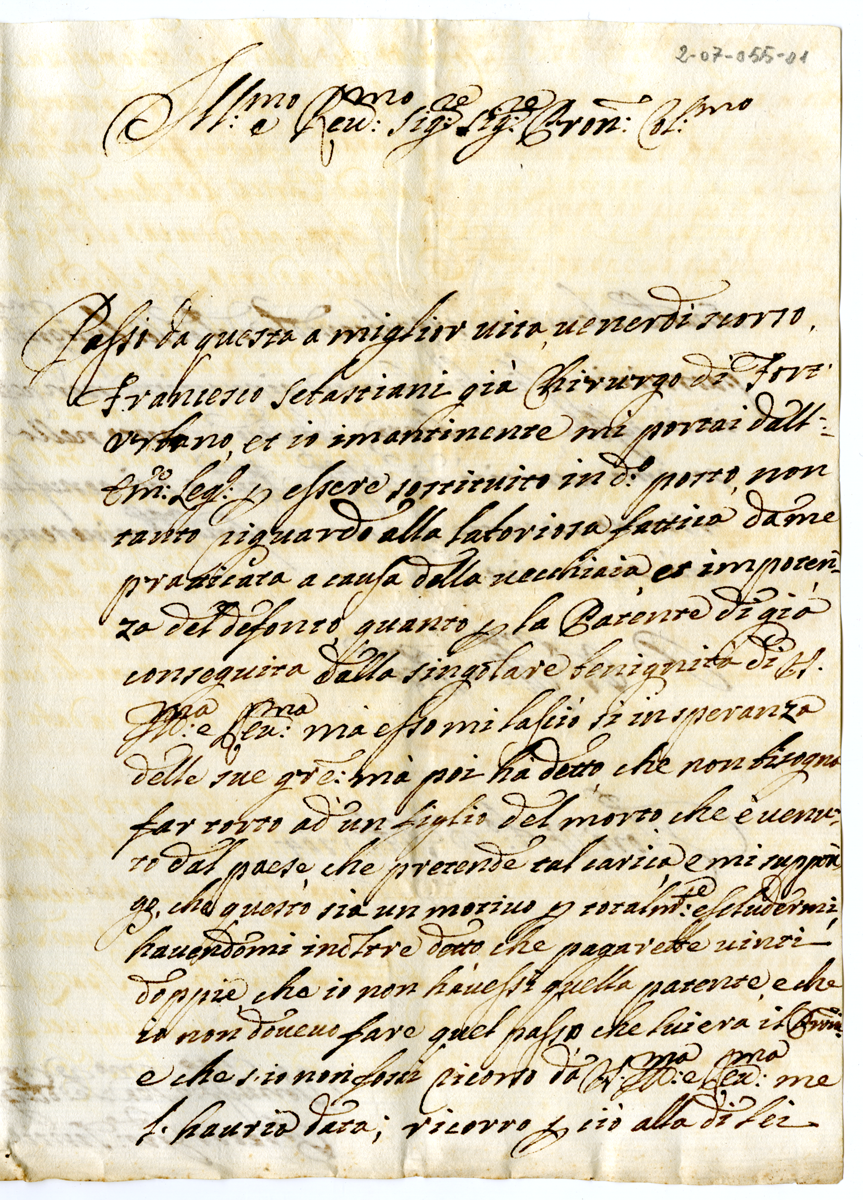 2-07-055-01
Ill:mo e Reu:mo Sig:re Sig:re Pron: Col:mo
Passò da questa a miglior uita, uenerdi scorso,
Francesco Sebastiani già Chirurgo di Fort'
Vrbano, et io imantinente mi portai dall'
Em:o Leg:o p essere sostituito in d:o posto, non
tanto riguardo alla laboriosa fattica da me
pratticata a causa della uecchiaia et impoten=
za del defonto, quanto p la Patente di già
conseguita dalla singolare benignità di V.
Ill:ma e Reu:ma mà esso mi lasciò si in speranza
delle sue gre: mà poi hà detto che non bisogna
far torto ad un figlio del morto che è uenu=
to dal paese che pretende tal carica e mi suppon
go, che questo sia un motiuo p totalm:te escludermi,
hauendomi inoltre detto che pagarebbe uinti
doppie che io non hauessi quella patente, e che
io non doueuo fare quel passo che lui era il
e che s'io non fossi ricorso dà V. Ill:ma e Reu:ma me
l' hauria data; ricorro p ciò alla di lei